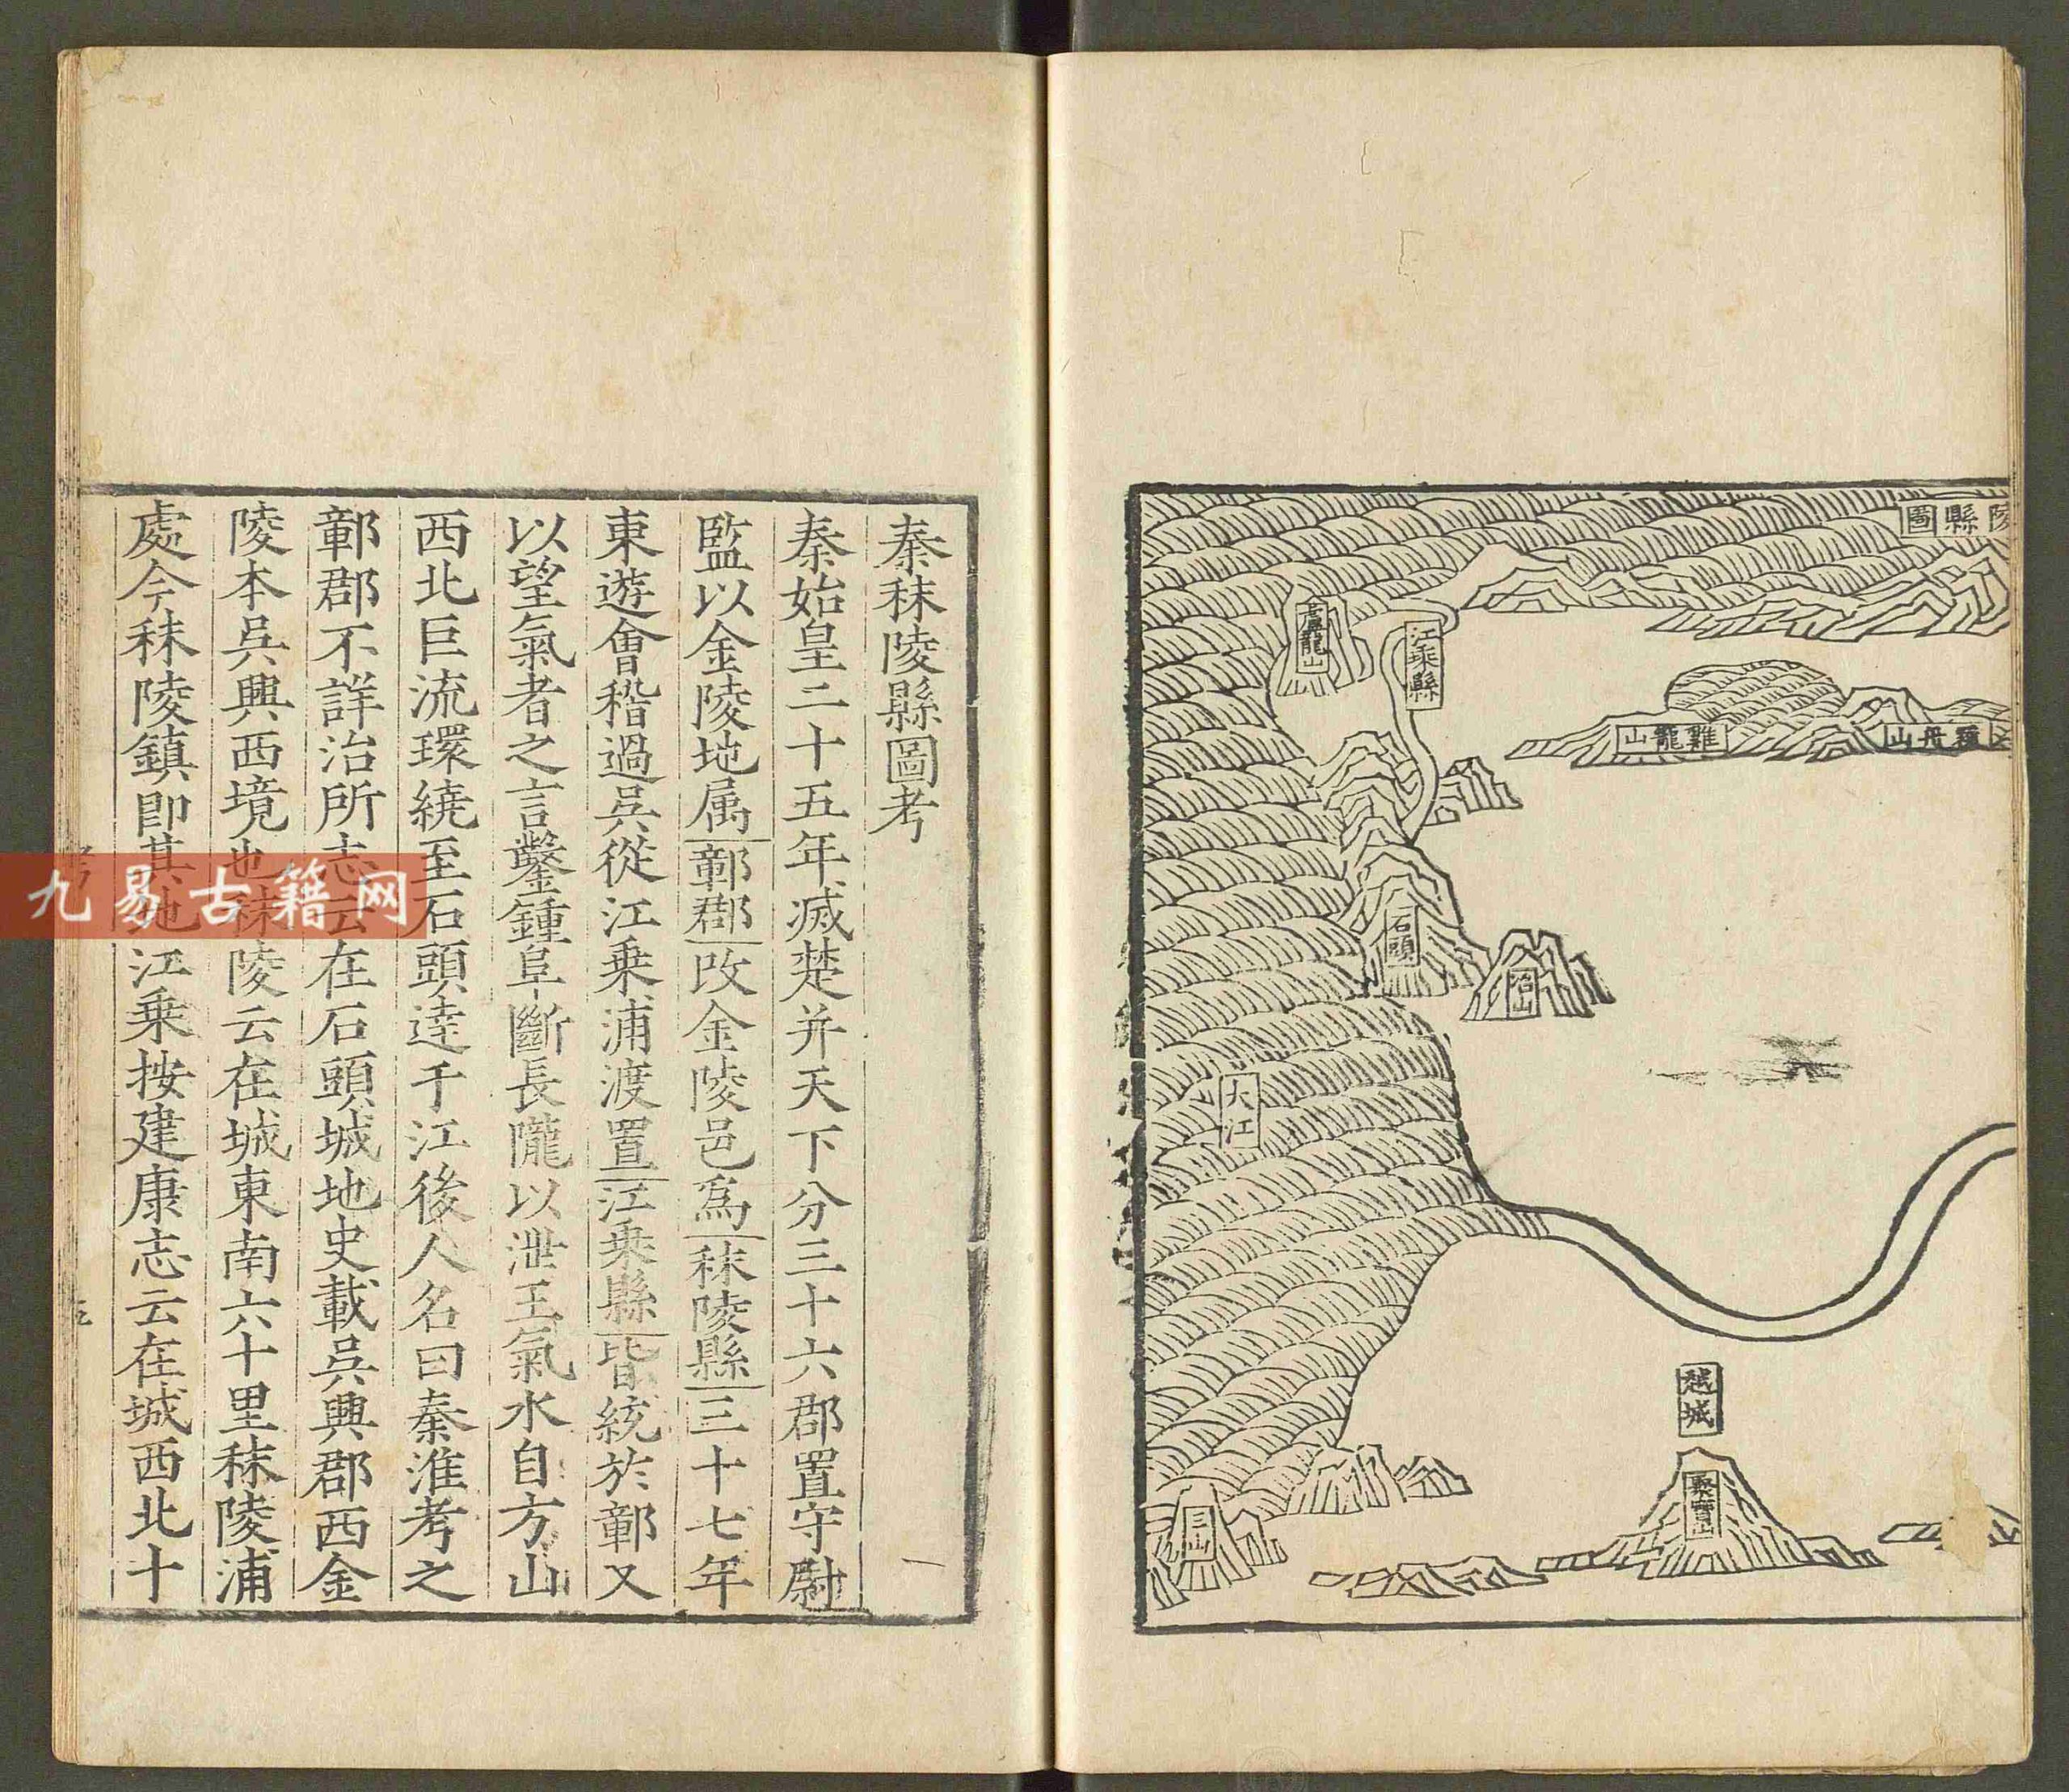 陵縣圖
盧龍山
江乘縣
雞籠山
覆舟山
石頭
冶山
大江
越城
聚寶山
三山
秦秣陵縣圖考
秦始皇二十五年滅楚并天下分三十六郡置守尉
監以金陵地属鄣郡改金陵邑爲秣陵縣三十七年
東遊會稽過吳從江乗浦渡置江乗縣皆統於鄣又
以望氣者之言鑿鍾阜斷長隴以泄王氣水自方山
西北巨流環繞至石頭達于江後人名曰秦淮考之
鄣郡不詳治所志云在石頭城地史載吳興郡西金
陵本吳興西境也秣陵云在城東南六十里秣陵浦
處今秣陵鎮即其地江乗按建康志云在城西北十
九易古籍网